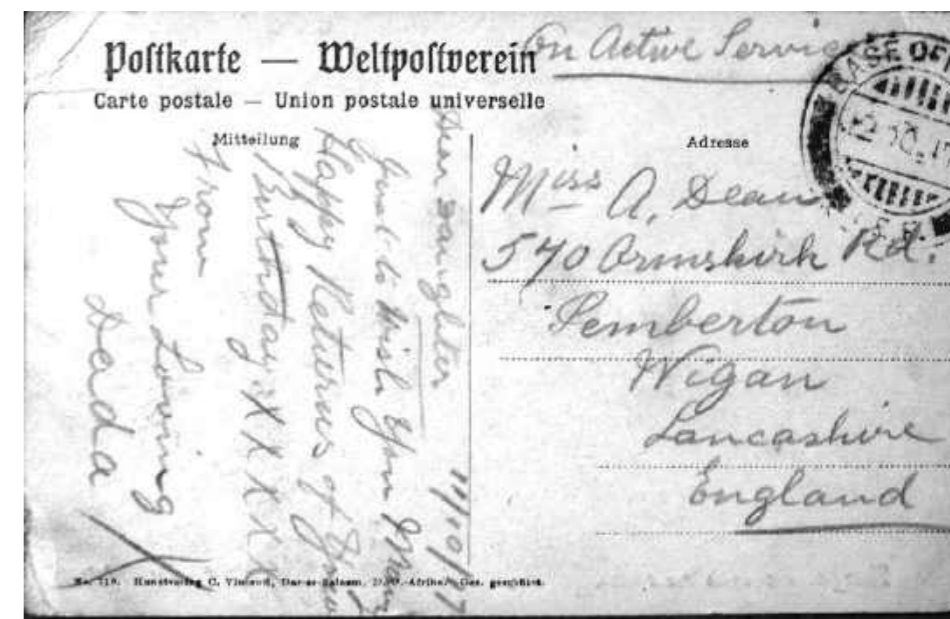 Postkarte — Weltpostverein
Carte postale — Union postale universelle
On Active Service
BASE OF
Mitteilung
Adresse
Dear Daughter 11/10/17
Just to Wish You Many
Happy Returns of Your
Birthday X X X X X
From
Your Loving
Dada
X
Miss A. Dean
570 Ormskirk Rd.
Pemberton
Wigan
Lancashire
England
No. 118. Kunstverlag C. Vincenti, Dar-es-Salaam, D.-O.-Afrika. Ges. geschützt.